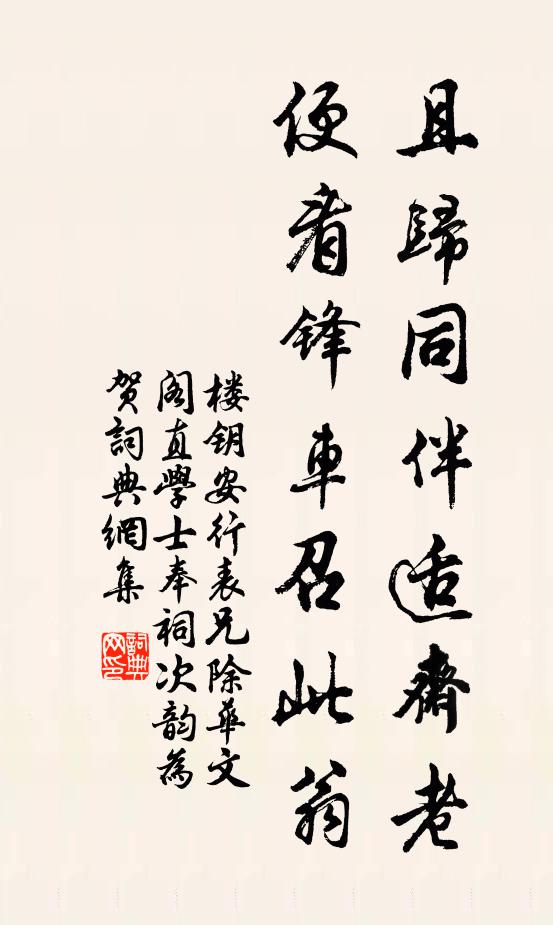 且歸同伴适齋老
便看鋒車召此翁
楼钥安行表兄除華文
阁直學士奉祠次韵為
贺詞典網集
詞典